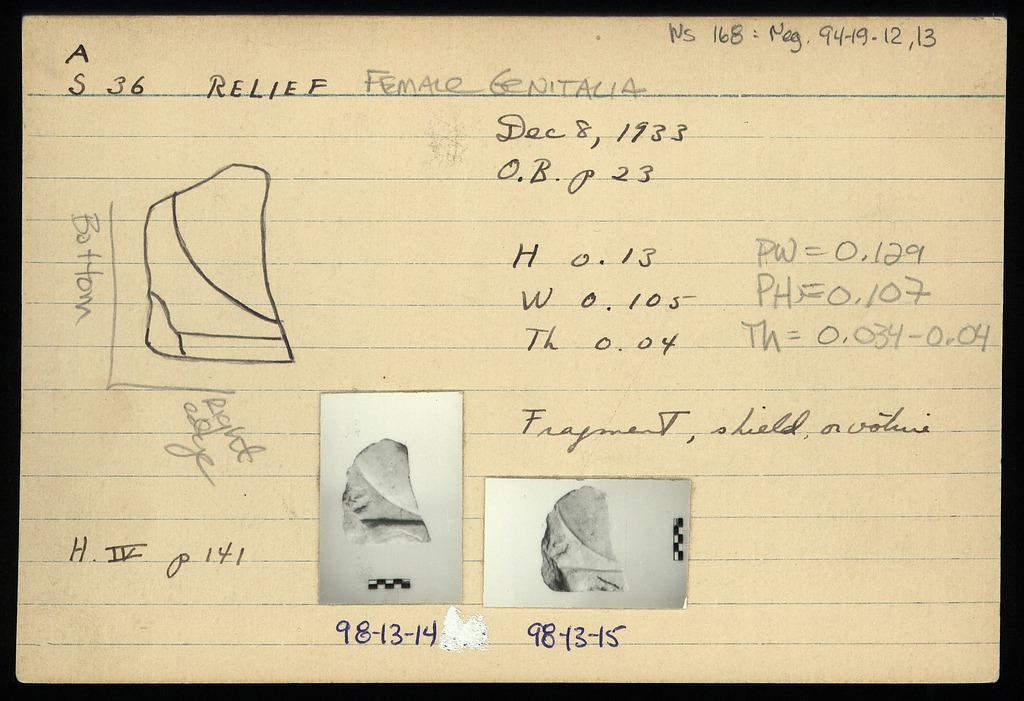 Ns 168 : Neg. 94-19-12,13
A
S 36 RELIEF FEMALE GENITALIA
Dec 8, 1933
O.B. p 23
Bottom
H 0.13 PW = 0.129
W 0.105 PH = 0.107
Th 0.04 Th = 0.034-0.04
right edge
Fragment, shield, or votive
H. IV p 141
98-13-14 98-13-15